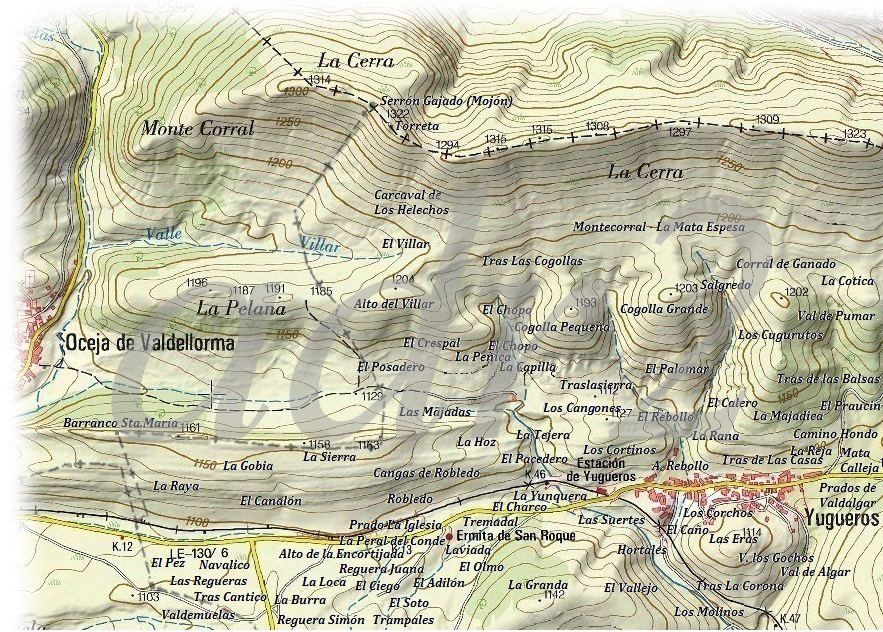 La Cerra
1314
1300
Serrón Gajado (Mojón)
1322
Torreta
Monte Corral
1250
1294
1315
1315
1308
1297
1309
1323
1200
La Cerra
1250
Carcaval de
Los Helechos
1200
Montecorral
La Mata Espesa
Valle
Villar
El Villar
Tras Las Cogollas
Corral de Ganado
La Cotica
Salgredo
1196
1187
1191
1185
1204
La Pelana
Alto del Villar
El Chopo
1193
Cogolla Pequeña
1203
Cogolla Grande
1202
Val de Pumar
Los Cugurutos
1150
Oceja de Valdellorma
El Crespal
El Chopo
La Peñica
La Capilla
El Posadero
El Palomar
Tras de las Balsas
1129
Traslasierra
1112
1150
El Calero
El Praucin
Las Majadas
Los Cangones
1127
El Rebollo
La Majadiea
Barranco Sta.María
1161
1158
1153
La Hoz
La Tejera
La Rana
Camino Hondo
La Sierra
Los Cortinos
La Reja
Mata
1150
La Gobia
El Pacedero
Estación
de Yugueros
A. Rebollo
Tras de Las Casas
Calleja
Cangas de Robledo
K.46
La Raya
El Canalón
Robledo
La Yunquera
Prados de
Valdalgar
El Charco
1100
Prado La Iglesia
Tremadal
Las Suertes
Los Corchos
Yugueros
El Caño
K.12
La Peral del Conde
Ermita de San Roque
Las Eras
1114
LE-130/ 6
Alto de la Encortijada
K.13
Laviada
Hortales
V. los Gochos
El Pez
Navalico
Reguera Juana
El Olmo
Val de Algar
Las Regueras
La Loca
El Ciego
El Adilón
La Granda
El Vallejo
Tras La Corona
1103
Tras Cantico
La Burra
El Soto
1142
Valdemuelas
Reguera Simón
Trampales
Los Molinos
K.47